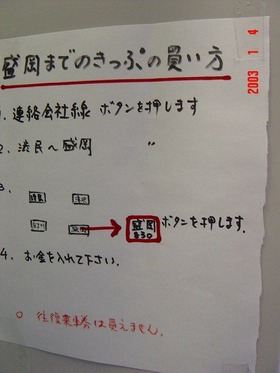 盛岡までのきっぷの買い方
1. 連絡会社線 ボタンを押します
2. 渋民へ盛岡 〃
3.
盛岡 830 ボタンを押します.
4. お金を入れて下さい.
○ 往復乗車券は買えません.
2003 1 4